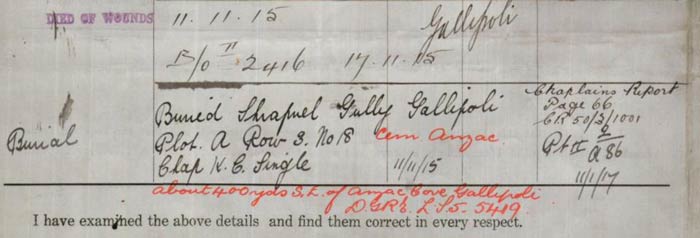 DIED OF WOUNDS 11.11.15 Gallipoli
B/o II 2416 17.11.15
Burial
Buried Shrapnel Gully Gallipoli
Plot. A Row 3. No 18 Cem Anzac.
Chap K. C. Single 11/11/15
Chaplains Report
Page 66
CR 50/3/1001
Pt II
A 86
11/1/17
about 400yds S.E. of Anzac Cove Gallipoli
D.GR&E. L.S5. 5419.
I have examined the above details and find them correct in every respect.